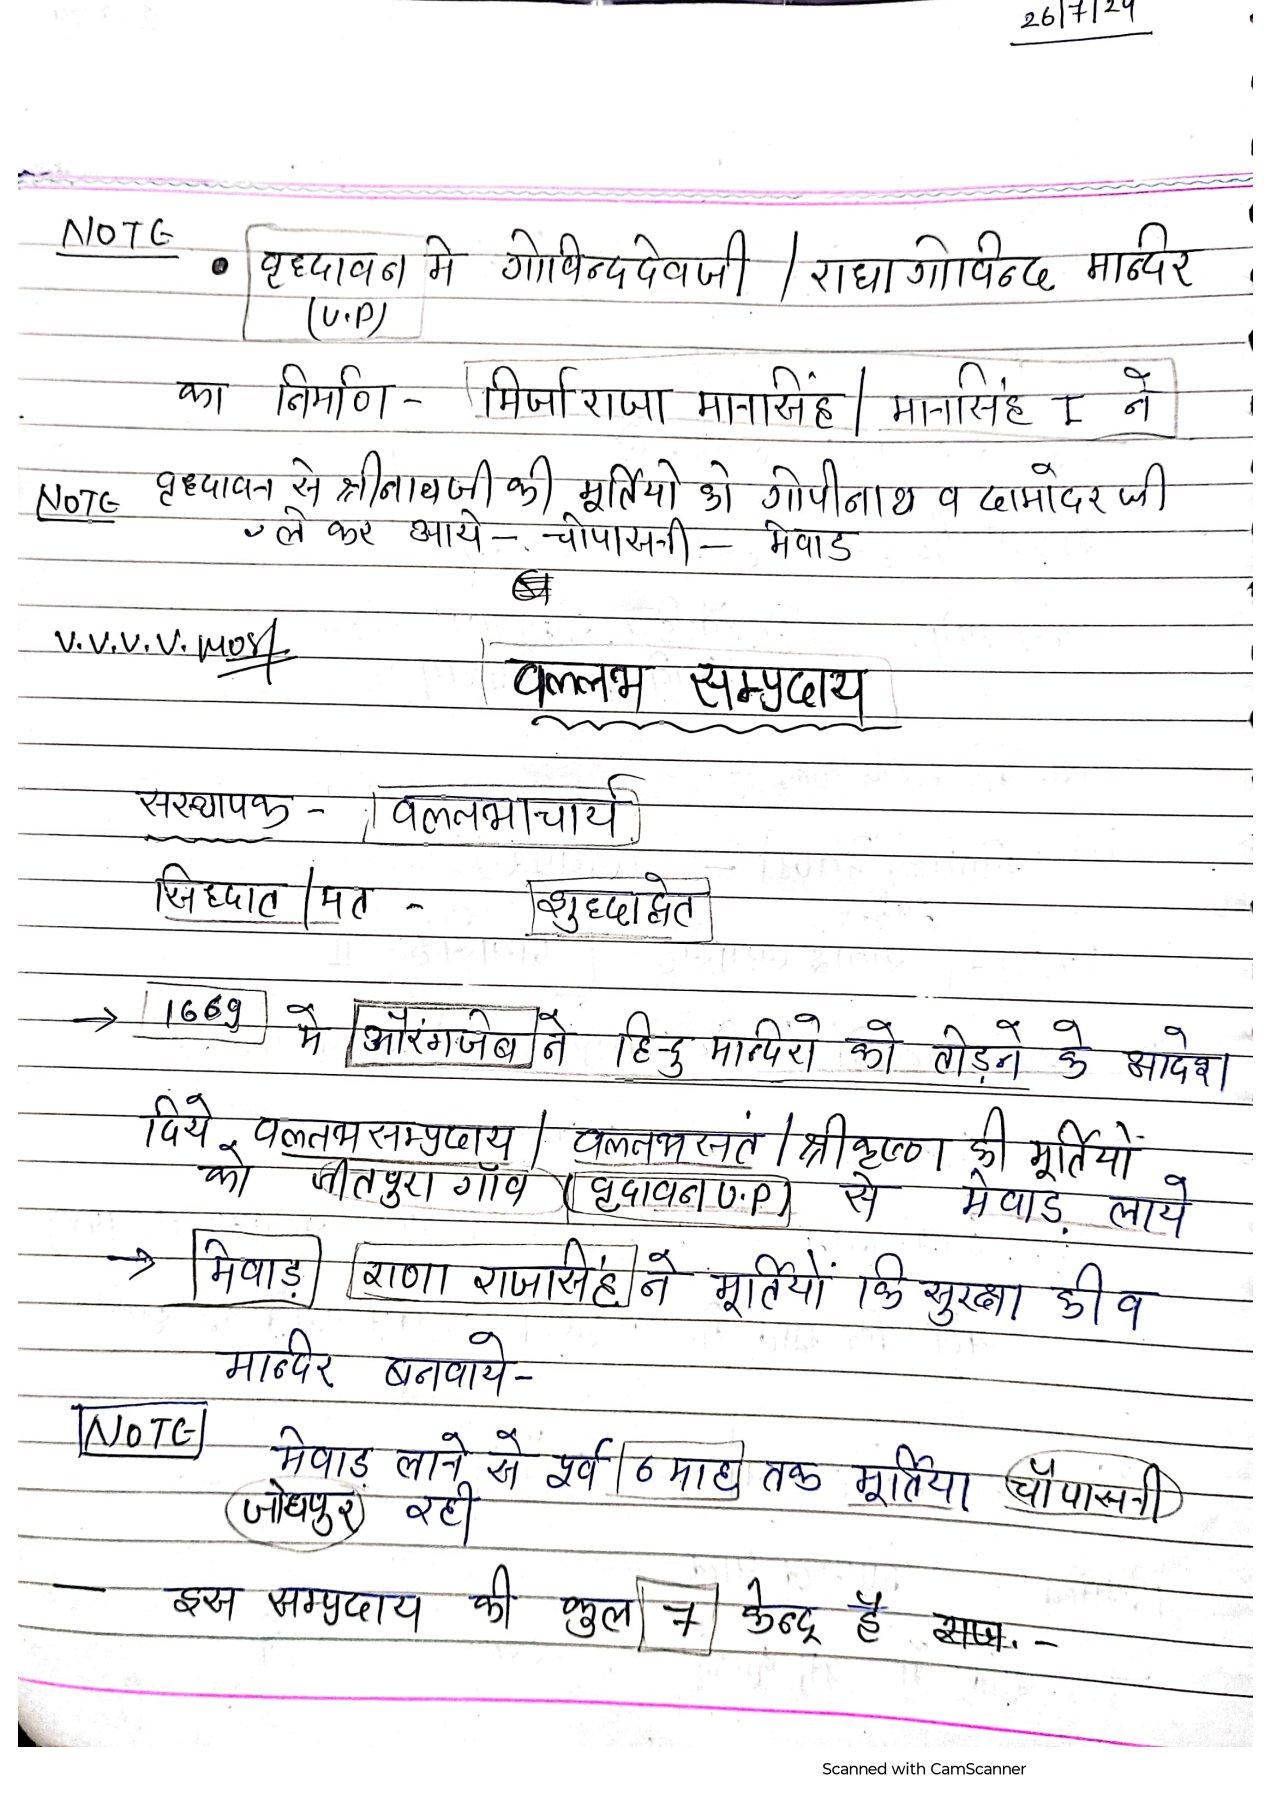 26/7/24
NOTE
• वृध्दावन मे गोविन्ददेवजी / राधागोविन्द मान्दिर
(U.P)
का निर्माण - मिर्जा राजा मानसिंह / मानसिंह I ने
NOTE वृध्दावन से श्रीनाथजी की मूर्तियो को गोपीनाथ व दामोदर जी
ले कर आये - चोपासनी - मेवाड
V.V.V.V. most
वल्लभ सम्प्रदाय
सस्थापक - वल्लभाचार्य
सिध्दात / मत - शुध्दाद्वेत
→ 1669 मे औरंगजेब ने हिन्दु मान्दिरो को तोड़ने के आदेश
दिये वल्लभ सम्प्रदाय / वल्लभ सतं / श्री कृष्ण की मूर्तियों
को जीतपुरा गाँव (वृदावन U.P) से मेवाड़ लाये
→ मेवाड़ राणा राजसिंह ने मूर्तियों कि सुरक्षा की व
मान्दिर बनवाये -
NOTE मेवाड़ लाने से पूर्व 6 माह तक मूर्तिया चौपासनी
जोधपुर रही
— इस सम्प्रदाय की कुल 7 केन्द्र है राज. -
Scanned with CamScanner